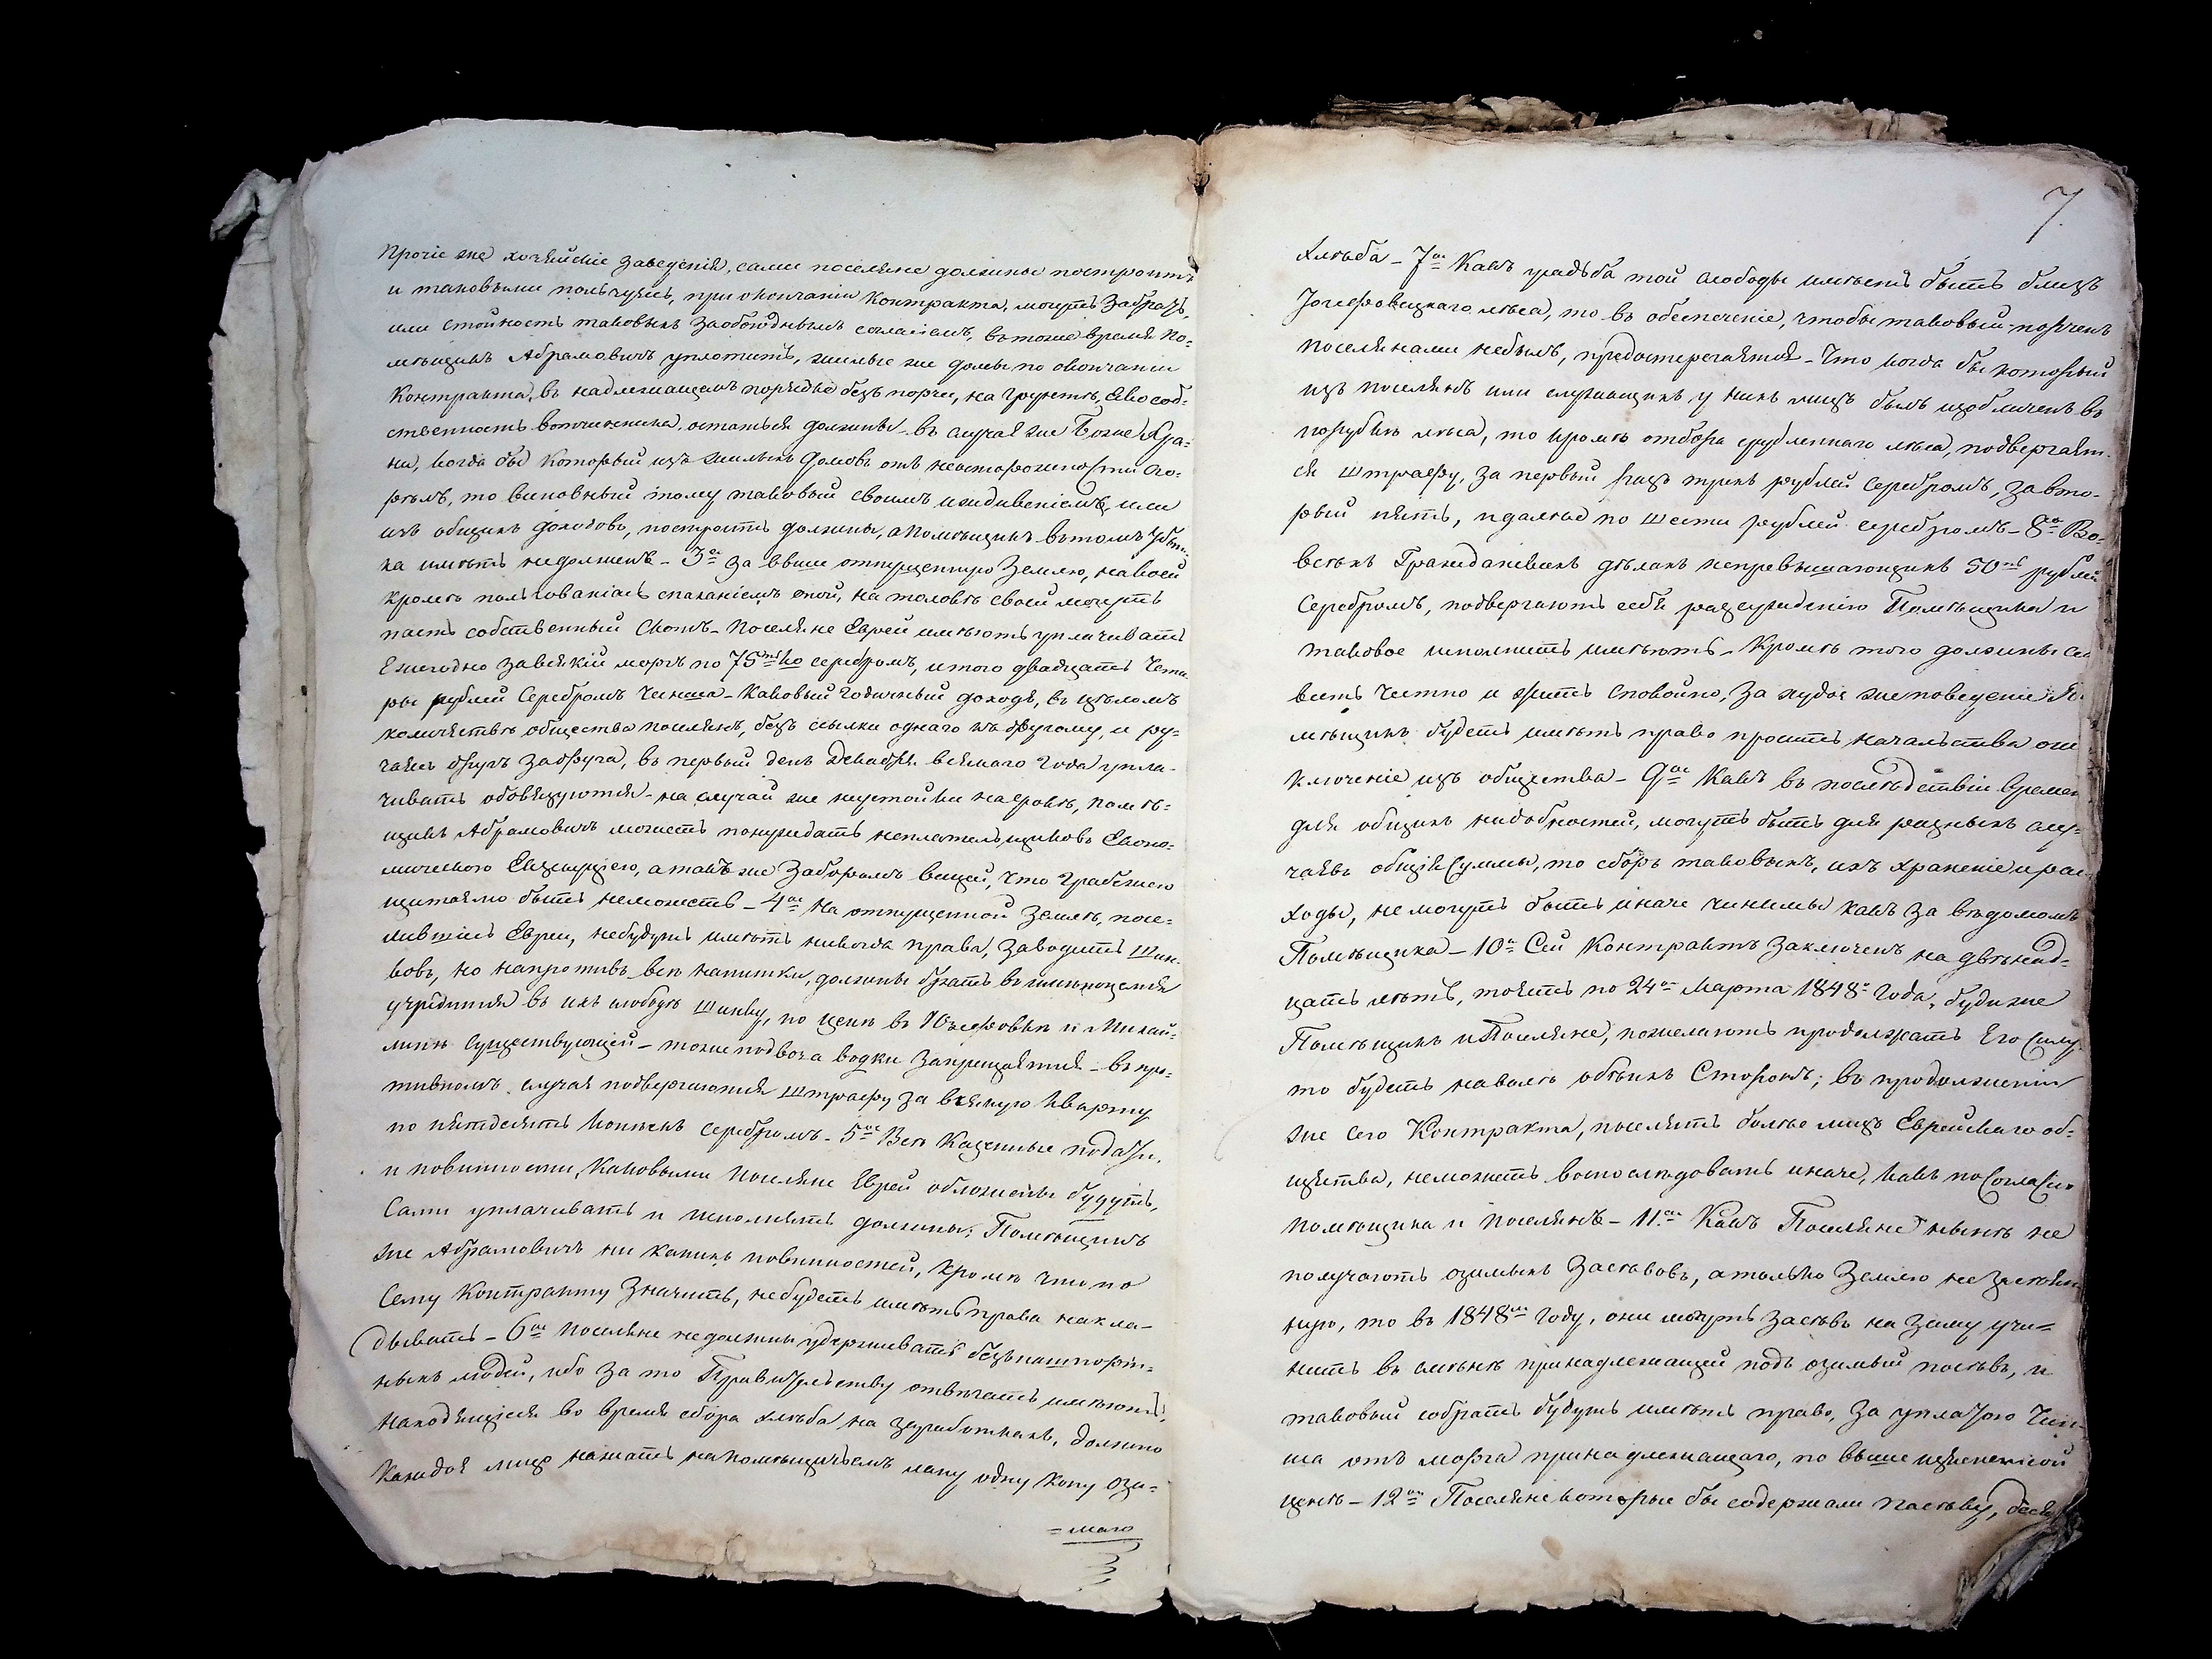 Прочіе же хозяйскіе заведенія, сами поселяне должны построить
и таковыми пользуясь, при окончаніи Контракта, могутъ забрать,
или стоимость таковыхъ заобоюднымъ согласіемъ, въ тоже время по-
мѣщикъ Абрамовичъ уплотитъ, жилые же домы по окончаніи
Контракта, въ надлежащемъ порядке безъ порчи, на грунтѣ, Ево соб-
ственность вотчинника, остатся должны - въ случаѣ же Боже хра-
ни, когда бы который изъ жилыхъ домовъ отъ неосторожности сго-
рѣлъ, то виновный тому таковый своимъ иждивеніемъ, или
изъ общихъ доходовъ, построить должны, а Помѣщикъ въ томъ убыт-
ка имѣть недолженъ - 3е За выше отпущенную Землю, на коей
кромѣ пользованіясь спаханіемъ оной, на толокѣ своей могутъ
пасть собственный скотъ - Поселяне Евреи имѣютъ уплачивать
Ежегодно завсякій моргъ по 75ть ко серебромъ, итого двадцать четы-
ры рублей Серебромъ Чинша - Каковый годичный доходъ, въ цѣломъ
количествѣ общества поселянъ, безъ ссылки одного къ другому, и ру-
чаясь другъ задруга, въ первый день Декабря всякаго года упла-
чивать обовязуются - на случай же неустойки на срокъ, помѣ-
щикъ Абрамовичъ можетъ понуждать неплательщиковъ Еконо-
мическою Екзекуціею, а такъ же Заборомъ вещей, что Грабежею
щитаемо быть неможетъ - 4ое На отпущенной Землѣ, посе-
лившіясь Евреи, небудутъ имѣть никогда права, Заводить Шин-
ковъ, но напротивъ всѣ напитки, должны брать въ имѣющемся
учредится въ ихъ слободѣ Шинку, по цене въ Юзефовкѣ и Михай-
ликѣ существующей - тоже подвоза водки запрещается - въ про-
тивномъ случаѣ подвергаются штрафу за всякую кварту
по пятдесятъ копѣекъ серебромъ - 5ое Всѣ Казенные подати,
и повинности, каковыми Поселяне Евреи обложены будутъ,
Сами уплачивать и исполнять должны; Помѣщикъ
же Абрамовичъ ни какихъ повинностей, кромѣ что по
Сему Контракту Значитъ, небудетъ имѣть права накла-
дывать - 6ое Поселяне недолжны удерживать безъпашпорт-
ныхъ людей, ибо за то Правительству отвѣчать имѣютъ,
находящіеся во время сбора хлѣба на заработкахъ, должно
Каждоѣ лицо нажать на помѣщичьемъ лану одну копу ози-
= маго
7
Хлѣба - 7ое Какъ усадьба той слободы имѣетъ быть близъ
Юзефовецкаго лѣса, то въ обеспеченіе, чтобы таковый порченъ
поселянами небылъ, предостерегается - Что когда бы который
изъ поселянъ или служащихъ у нихъ лицъ былъ изобличенъ въ
порубкѣ лѣса, то кромѣ отбора срубленнаго лѣса, подвергает-
ся Штрафу, за первый разъ трихъ рублей серебромъ, за вто-
рый пять, и далѣе по шести рублей серебромъ - 8ое Во-
всѣхъ Гражданскихъ дѣлахъ непревышающихъ 50ть рублей
Серебромъ, подвергаютъ себя разсужденію Помѣщика и
таковое исполнить имѣютъ - Кромѣ того должны се
весть честно и жить спокойно, За худое же поведеніе По-
мѣщикъ будетъ имѣть право просить начальства о ис
ключеніе изъ общества - 9ое Какъ въ последствіи времени
для общихъ надобностей, могутъ быть для разныхъ слу-
чаевъ общіе Суммы, то сборъ таковыхъ, ихъ храненіе и рас
ходы, немогутъ быть иначе чинимы какъ за вѣдомомъ
Помѣщика - 10е Сей Контрактъ Заключенъ на двѣнад-
цать лѣтъ, тоесть по 24е Марта 1848го Года, буди же
Помѣщикъ и Поселяне, пожелаютъ продолжать Его Силу
то будетъ на волѣ обѣихъ Сторонъ; въ продолженіи
же сего Контракта, поселить более лицъ Еврейскаго об-
щества, неможетъ воспоследовать иначе, какъ по Согласію
помѣщика и поселянъ - 11ое Какъ Поселяне нынѣ не
получаютъ озимыхъ Засѣвовъ, а только Землю не засѣян-
ную, то въ 1848мъ Году, они могутъ Засѣвъ на зиму учи-
нить въ смѣнѣ принадлежащей подъ озимый посѣвъ, и
таковый собрать будутъ имѣть право, за уплатою Чин-
ша отъ морга принадлежащаго, по выше изясненной
ценѣ - 12ое Поселяне которые бы содержали пасѣку,